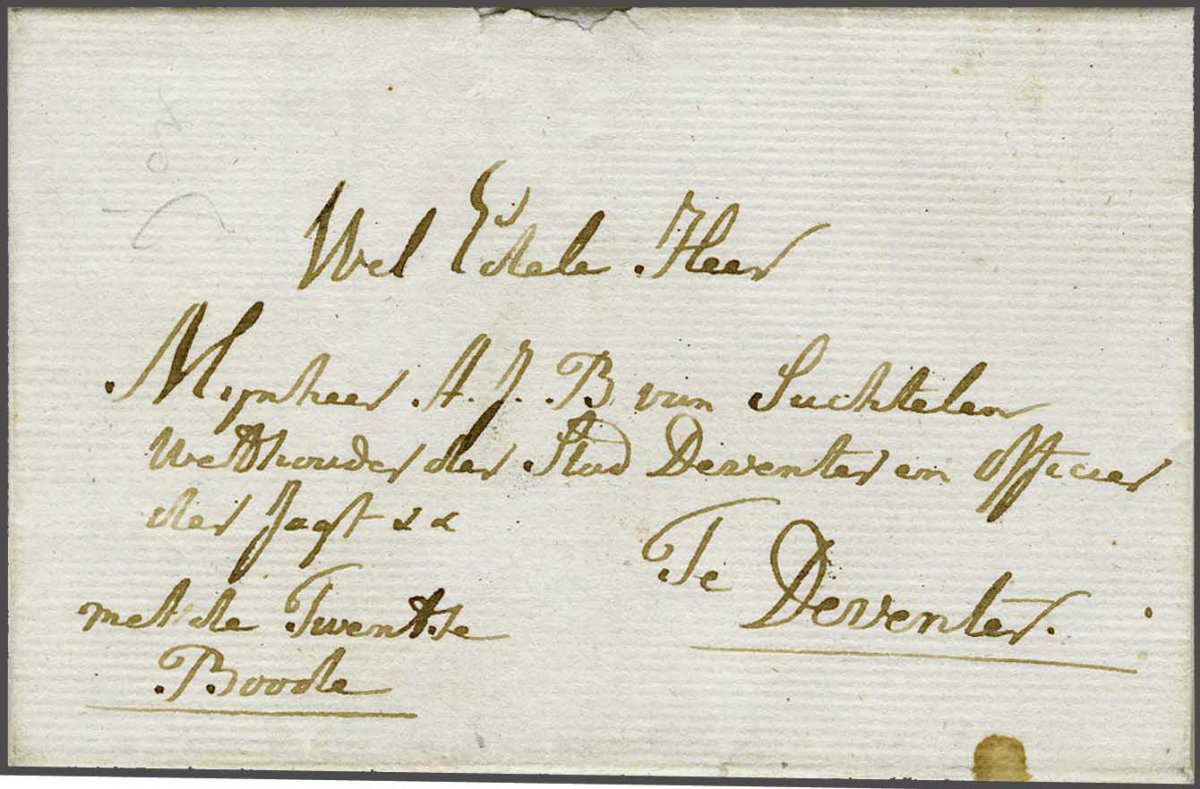 Wel Edele Heer
Mynheer A. J. B van Suchtelen
Wetthouder der Stad Deventer en Officier
der Jagt
Te
Deventer.
met de Twentse
Boode